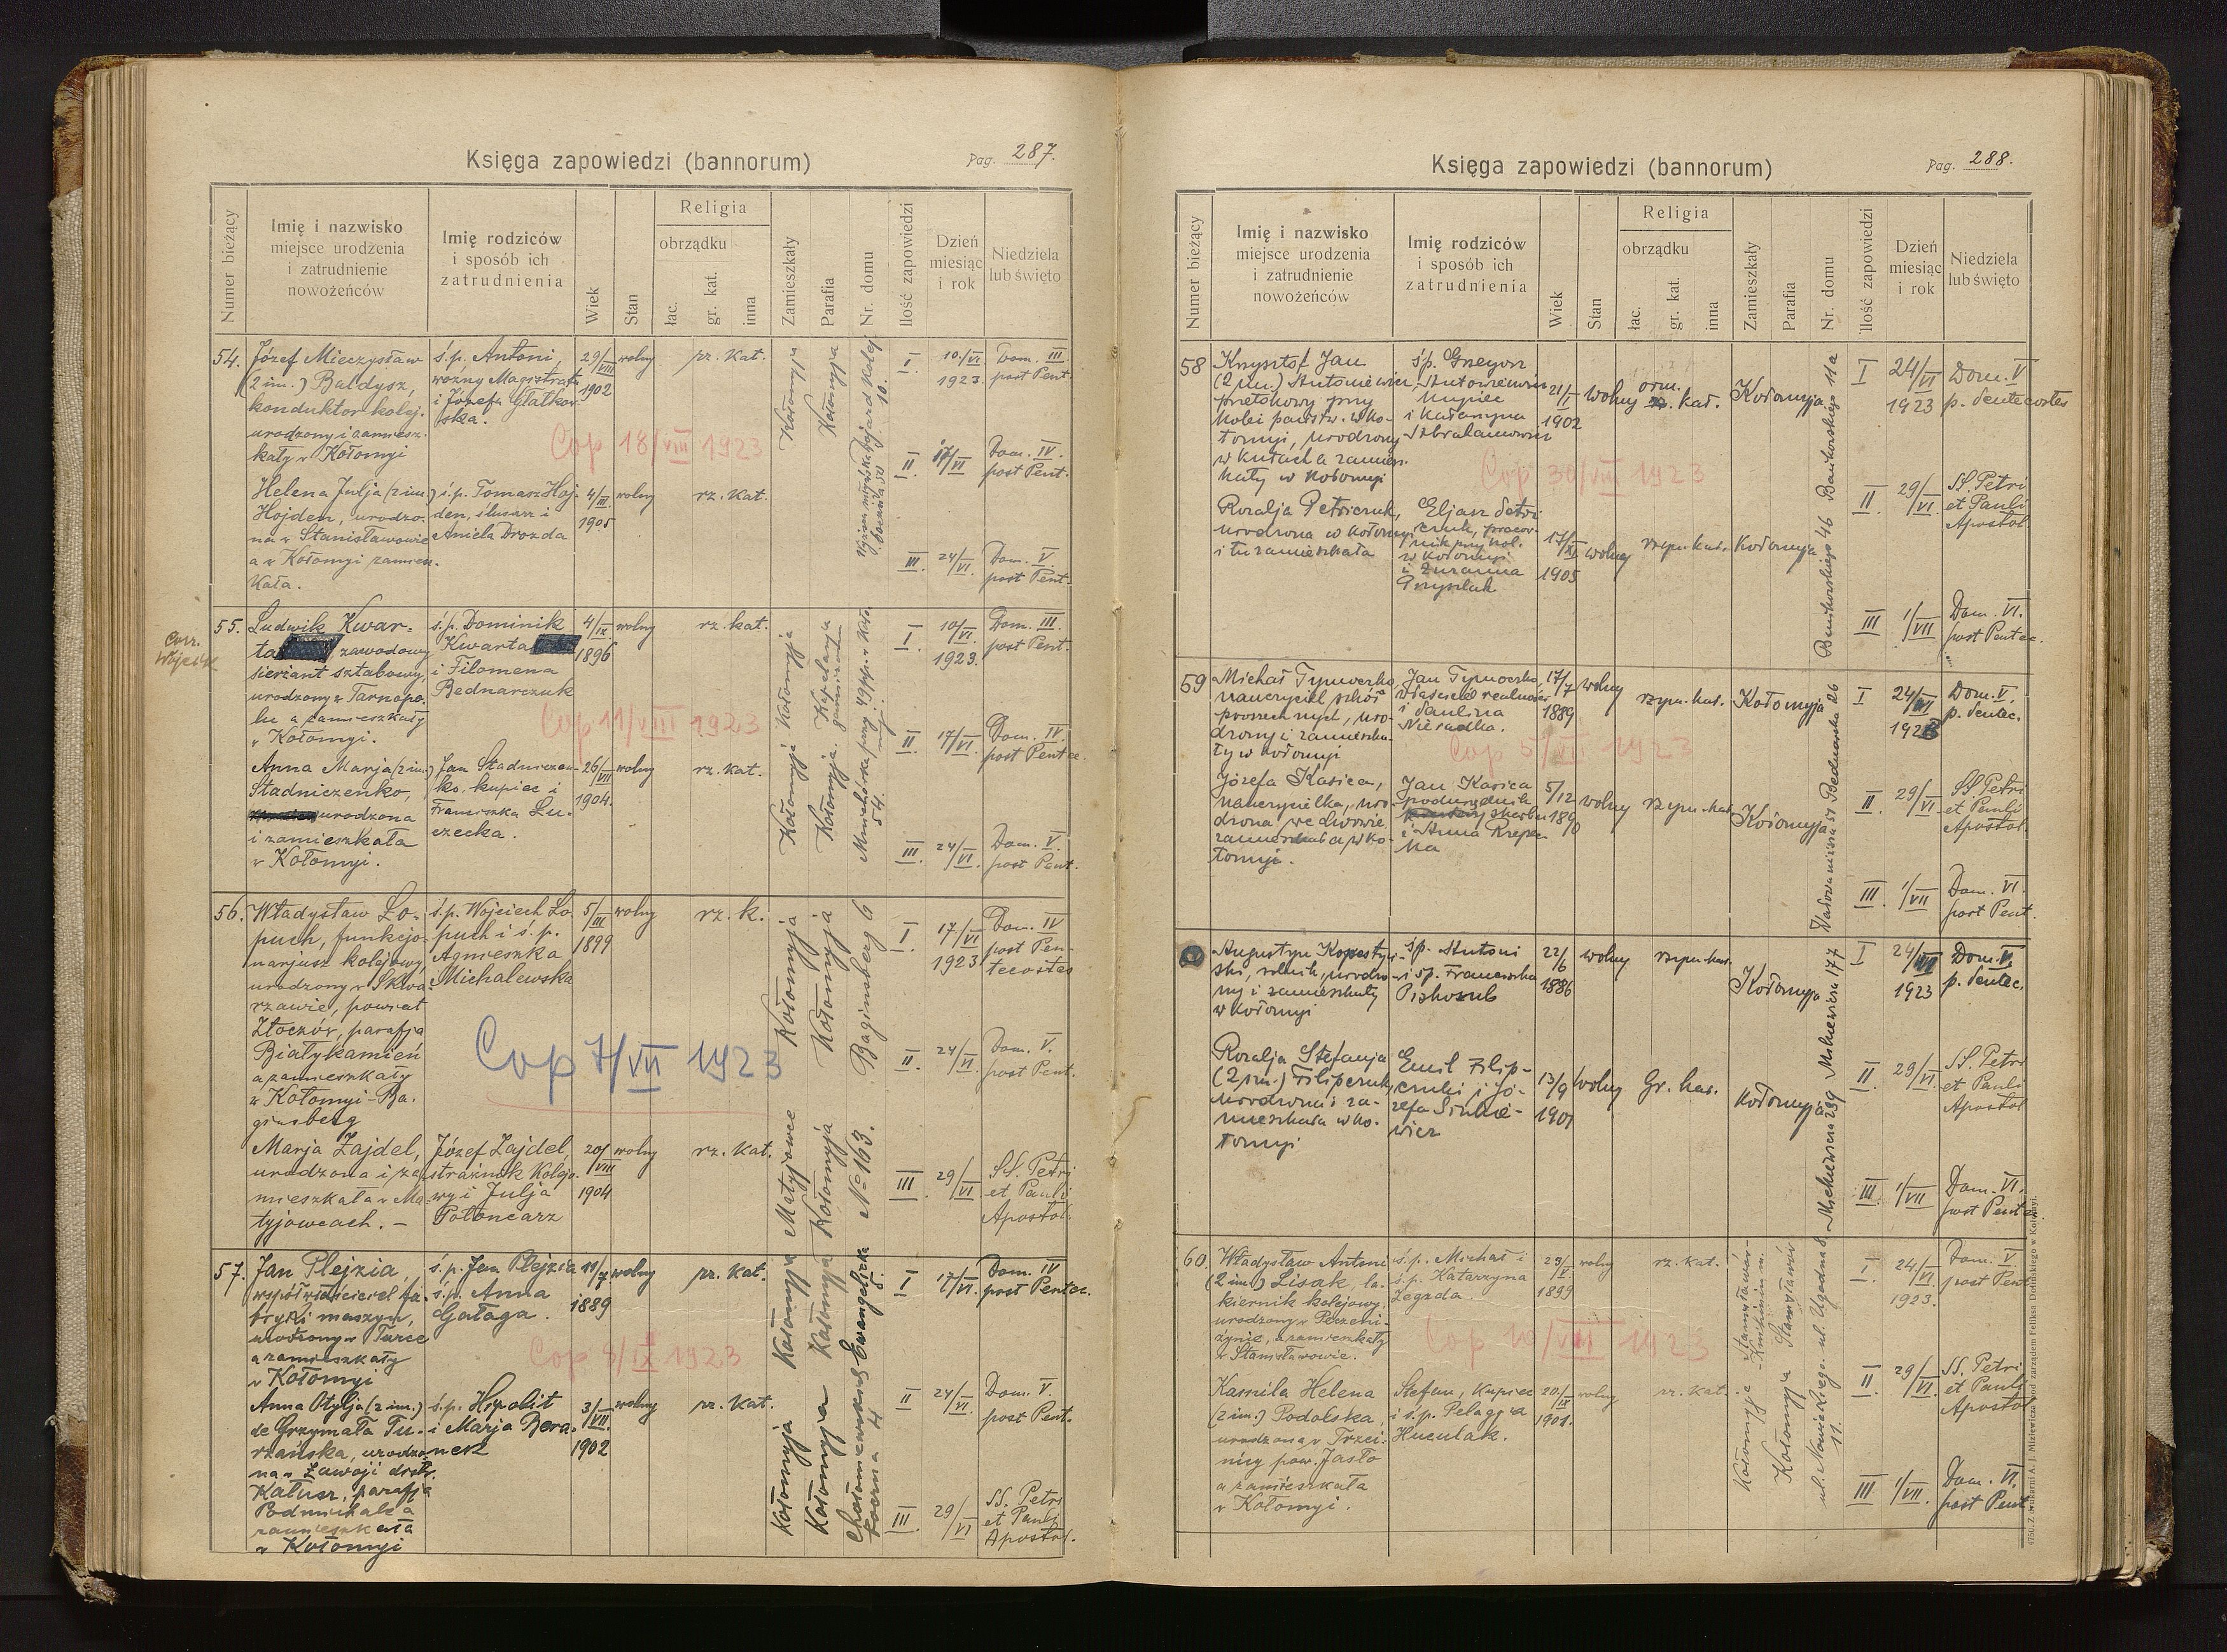 Księga zapowiedzi (bannorum)
Pag. 287.
Numer bieżący
Imię i nazwisko
miejsce urodzenia
i zatrudnienie
nowożeńców
Imię rodziców
i sposób ich
zatrudnienia
Wiek
Stan
Religia
obrządku
łac.
gr. kat.
inna
Zamieszkały
Parafia
Nr. domu
Ilość zapowiedzi
Dzień
miesiąc
i rok
Niedziela
lub święto
54.
Józef Mieczysław
(2 im.) Bałdysz,
konduktor kolej.
urodzony i zamiesz.
kały w Kołomyi
ś.p. Antoni,
woźny Magistratu
i Józefa Glatkow
ska.
29/VIII
1902
wolny
rz. kat.
Kołomyja
Kołomyja
I
10./VI
1923.
Dom. III
post Pent.
Cop 18/VIII 1923
II
17/VI
Dom. IV.
post Pent.
Helena Julja (2 im.)
Hojden, urodzo.
na w Stanisławowie
a w Kołomyi zamiesz.
kała.
ś.p. Tomasz Hoj
den, ślusarz i
Aniela Drozda
4/III
1905
wolny
rz. kat.
III
24/VI.
Dom. V.
post Pent.
Corr.
Wójcik
55.
Ludwik Kwar=
ta zawodowy
sierżant sztabowy,
urodzony w Tarnopo.
lu a zamieszkały
w Kołomyi.
ś.p. Dominik
Kwarta
i Filomena
Bednarczuk
4/IX
1896
wolny
rz. kat.
Kołomyja
Kołomyja. Kapelanja
I
10/VI.
1923.
Dom. III.
post Pent.
Cop 11/VIII 1923
II
17/VI.
Dom. IV.
post Pentec.
Anna Marja (2 im.)
Stadniczenko,
urodzona
i zamieszkała
w Kołomyi.
Jan Stadniczen=
ko, kupiec i
Franciszka Łu-
czecka.
26/VII
1904.
wolny
rz. kat.
Kołomyja
54.
III
24/VI.
Dom. V.
post Pent.
56.
Władysław Ło-
puch, funkcjo-
narjusz kolejowy,
urodzony w Skwa
rzawie, powiat
Złoczów, parafja
Białykamień
a zamieszkały
w Kołomyi-Ba.
ginsberg
ś.p. Wojciech Ło
puch i ś.p.
Agnieszka
Michalewska
5/III
1899
wolny
rz. k.
Kołomyja
Kołomyja
Baginsberg 6
I
17/VI
1923
Dom. IV
post Pen-
tecostes
Cop 7/VII 1923
II
24/VI.
Dom. V.
post Pent.
Marja Zajdel,
urodzona i za
mieszkała w Ma
tyjowcach. –
Józef Zajdel,
strażnik Kolejo.
wy i Julja
Połoncarz
20/VIII
1904
wolny
rz. kat.
Matyjowce
Kołomyja
No 163.
III
29/VI.
SS. Petri
et Pauli
Apostol.
57.
Jan Plejzia,
współwłaściciel fa.
bryki maszyn,
urodzony w Turce
a zamieszkały
w Kołomyi
ś.p. Jan Plejzia
ś.p. Anna
Gałaga.
11/7
1889
wolny
rz. kat.
Kołomyja
Kołomyja
Evangelicka
I
17/VI.
Dom. IV
post Pentec.
Cop 4/IX 1923
Anna Otylja (2 im.)
de Grzymała Tu.
rzańska, urodzo
na w Zawoji distr.
Kałusz, parafja
Podmichale a
zamieszkała
w Kołomyi
ś.p. Hipolit
i Marja Bera.
nek
3/VII.
1902
wolny
rz. kat.
Kołomyja
Kołomyja
II
24/VI.
Dom. V.
post Pent.
III
29/VI
SS. Petri
et Pauli
Apostol.
Księga zapowiedzi (bannorum)
Pag. 288.
Numer bieżący
Imię i nazwisko
miejsce urodzenia
i zatrudnienie
nowożeńców
Imię rodziców
i sposób ich
zatrudnienia
Wiek
Stan
Religia
obrządku
łac.
gr. kat.
inna
Zamieszkały
Parafia
Nr. domu
Ilość zapowiedzi
Dzień
miesiąc
i rok
Niedziela
lub święto
58
Krzysztof Jan
(2 im.) Antoniewicz,
przetokowy przy
kolei państw. w Ko-
łomyi, urodzony
w Kutach a zamiesz.
kały w Kołomyi
śp. Grzegorz
Antoniewicz
kupiec
i Katarzyna
Abrahamowicz
21/I
1902
wolny
orm.
kat.
Kołomyja
11a
I
24/VI
1923
Dom. V
p. Pentecostes
Cop 30/VIII 1923
II
29/VI.
SS. Petri
et Pauli
Apostol.
Rozalja Petriczuk,
urodzona w Kołomyi
i tu zamieszkała
Eljasz Petri
czuk, pracow
nik przy kol.
w Kołomyi
i Zuzanna
17/XI
1905
wolny
rzym. kat.
Kołomyja
46
III
1/VII
Dom. VI.
post Pentec.
59
Michał Tymoczko
nauczyciel szkół
powszechnych, uro-
dzony i zamieszka-
ły w Kołomyi
Jan Tymoczko
właściciel realności
i Paulina
17/7
1889
wolny
rzym. kat.
Kołomyja
Bednarska 26
I
24/VI
1923
Dom. V.
p. Pentec.
Józefa Kasica,
nauczycielka, uro
dzona we Lwowie
zamieszkała w Ko-
łomyji.
Jan Kasica
podurzędnik
skarbu
i Anna Krzepe
5/12
1890
wolny
rzym. kat.
Kołomyja
II
29/VI.
SS. Petri
et Pauli
Apostol.
III
1/VII
Dom. VI.
post Pent.
Augustyn Kopestyń-
ski, rolnik, urodzo
ny i zamieszkały
w Kołomyi
śp. Antoni
i śp. Franciszka
22/6
1886
wolny
rzym. kat.
Kołomyja
Mickiewicza 177
I
24/VI
1923
Dom. V.
p. Pentec.
Rozalja Stefanja
(2 im.) Filipczuk,
urodzona i za-
mieszkała w Ko-
łomyi
Emil Filip-
czuk i Jó-
zefa
13/9
1901
wolny
Gr. kat.
Kołomyja
Mickiewicza 239
II
29/VI.
SS. Petri
et Pauli
Apostol
III
1/VII
Dom. VI.
post Pentec.
60.
Władysław Antoni
(2 im.) Lisak, la.
kiernik kolejowy,
urodzony w Peczeni-
żynie, a zamieszkały
w Stanisławowie.
ś.p. Michał i
ś.p. Katarzyna
Zegzda.
1899
wolny
rz. kat.
Stanisławów-
Knihinin m.
Stanisławów
ul. Ugodna 8.
I
24/VI.
1923.
Dom. V
post Pent
Cop 10/VIII 1923
Kamila Helena
(2 im.) Podolska,
urodzona w Trzci-
nicy pow. Jasło
a zamieszkała
w Kołomyi.
Stefan, kupiec
i ś.p. Pelagja
Huculak.
20./IX
1901.
wolny
rz. kat.
Kołomyja
Kołomyja
11.
II
29/VI.
SS. Petri
et Pauli
Apostol
III
1/VII.
Dom. VI.
post Pent